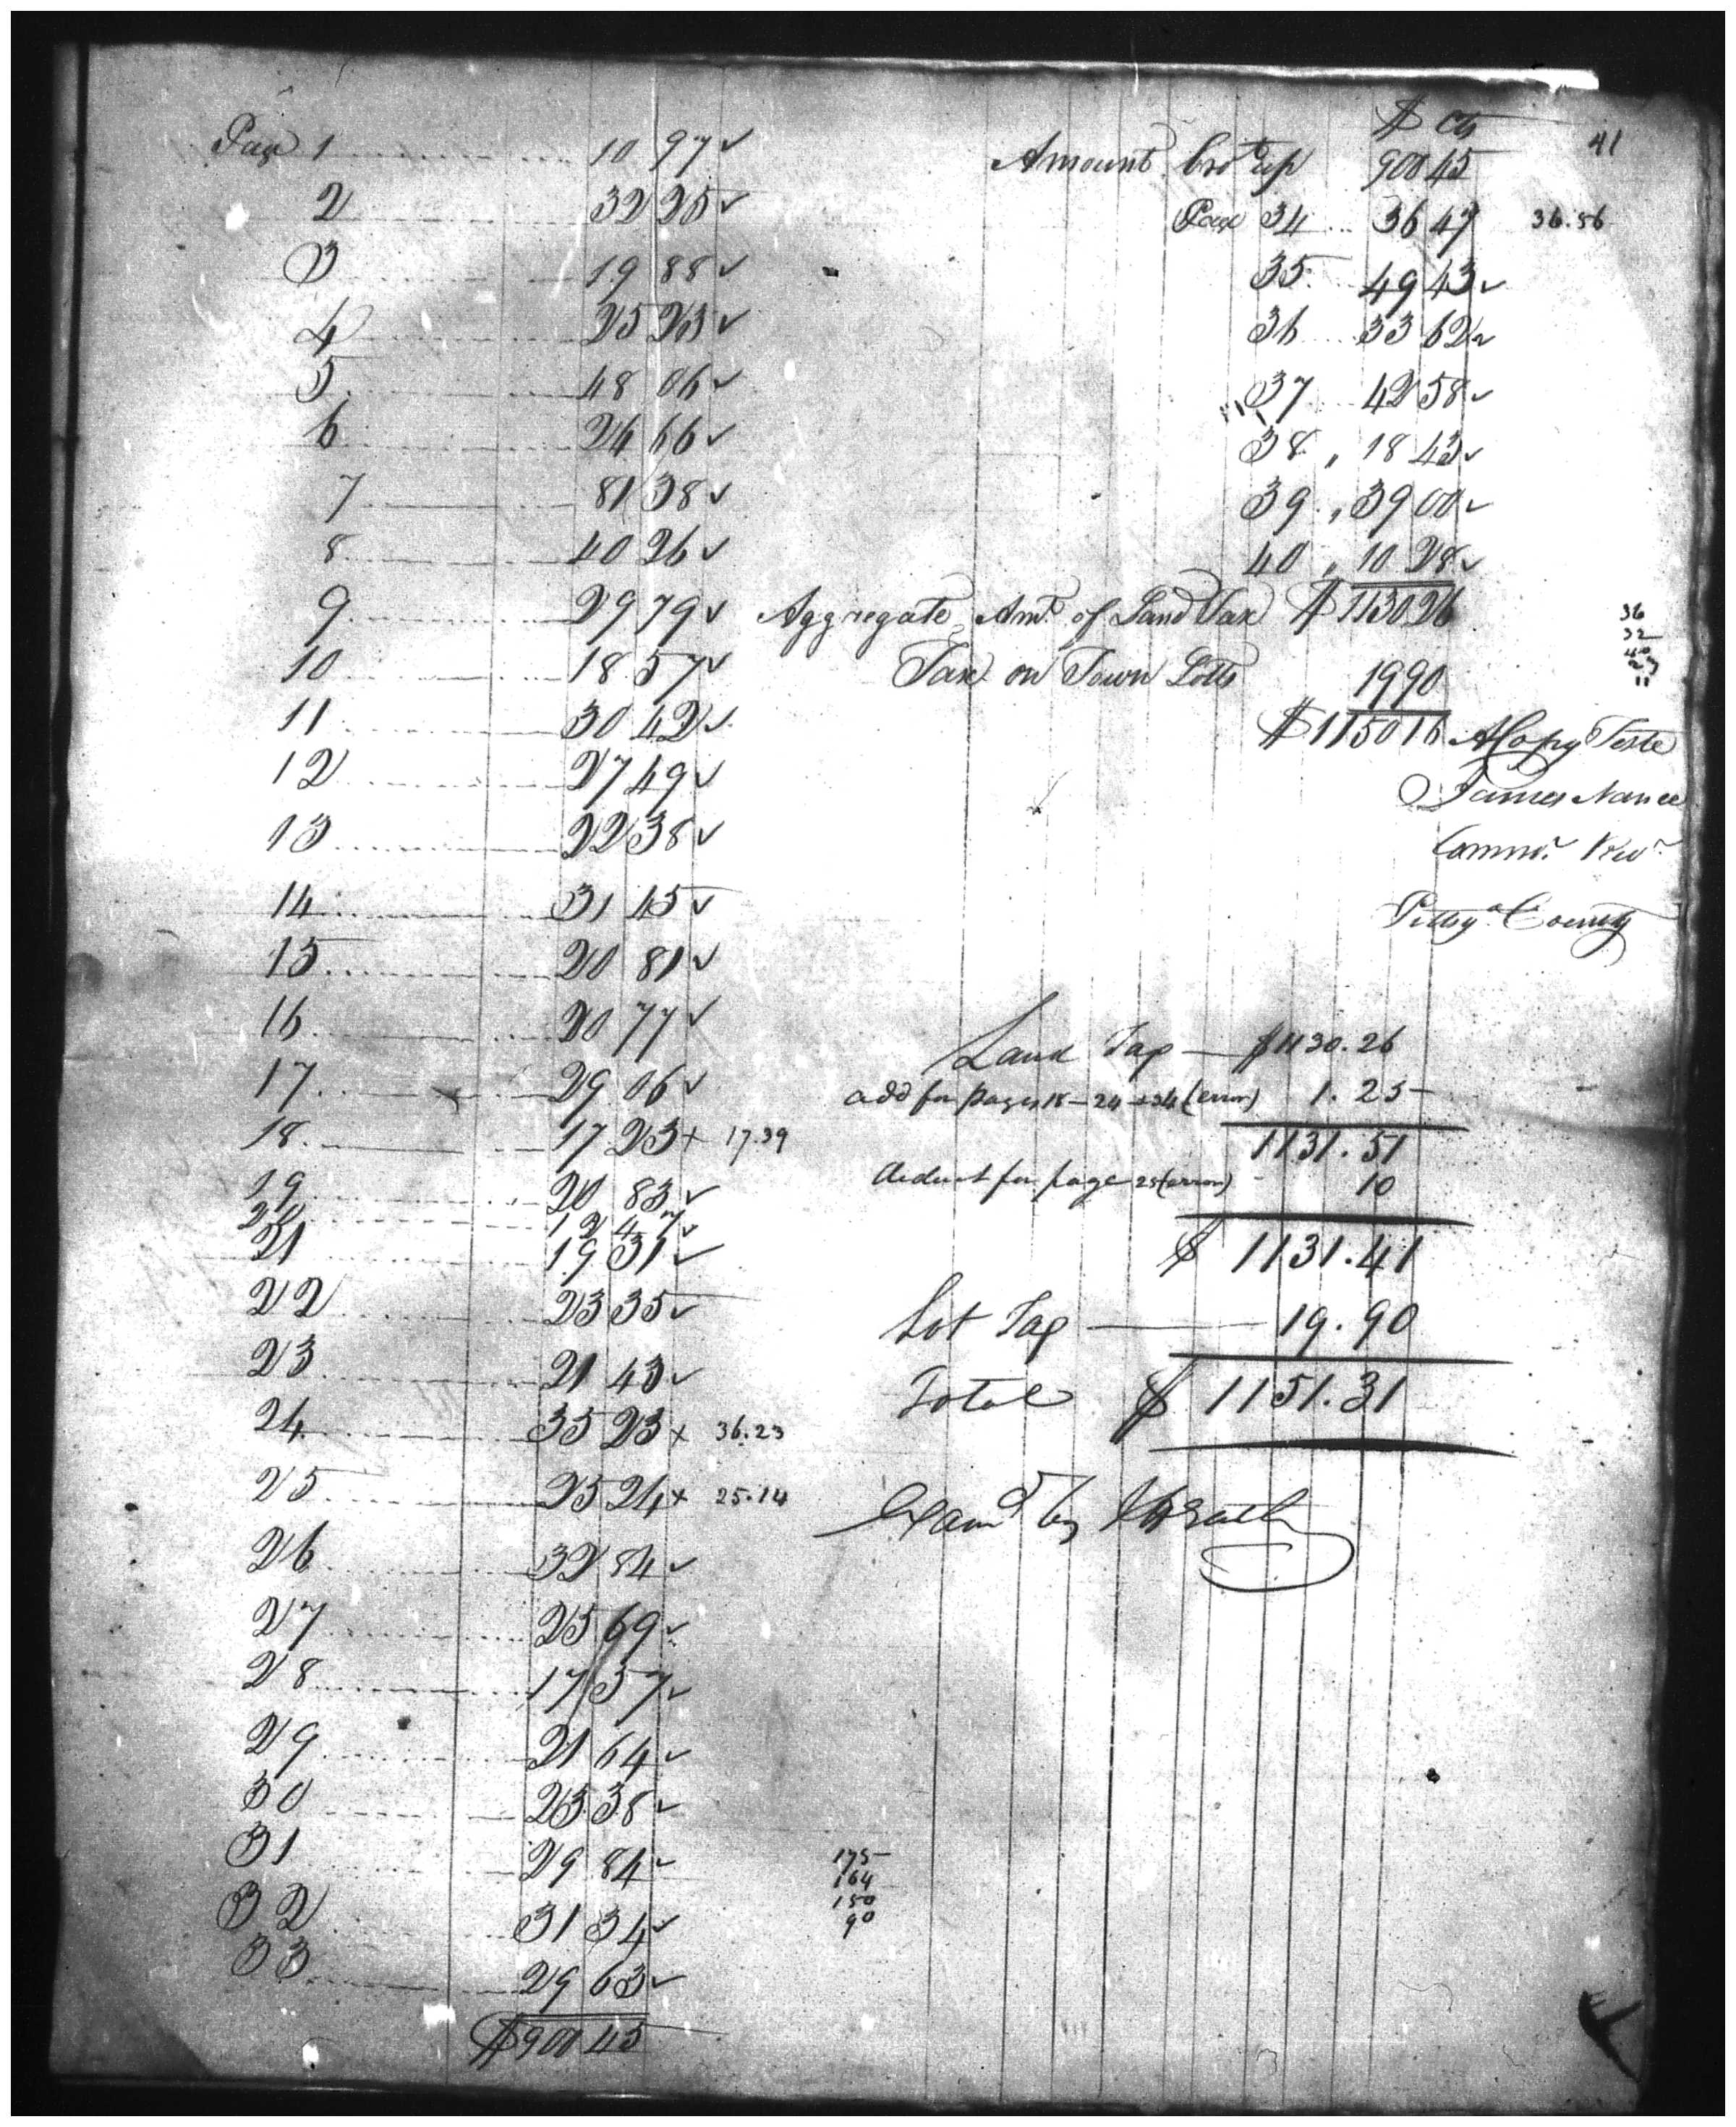 Page 1 10 97 ✓
2 32 25 ✓
3 19 88 ✓
4 25 23 ✓
5 48 06 ✓
6 24 66 ✓
7 81 38 ✓
8 40 26 ✓
9 29 79 ✓
10 18 57 ✓
11 30 42 ✓
12 27 49 ✓
13 22 38 ✓
14 31 45 ✓
15 20 81 ✓
16 20 77 ✓
17 29 06 ✓
18 17 23 x 17.39
19 20 83 ✓
20 12 47 ✓
21 19 31 ✓
22 23 35 ✓
23 21 43 ✓
24 35 23 x 36.23
25 25 24 x 25.14
26 32 84 ✓
27 25 69 ✓
28 17 57 ✓
29 21 64 ✓
30 25 38 ✓
31 29 84 ✓
32 31 34 ✓
33 29 63 ✓
$900 45
41
$ Cts
Amount bro't up 900 45
Page 34 36 47 36.56
35 49 43 ✓
36 33 62 ✓
37 42 58 ✓
38 " 18 43 ✓
39 " 39 00 ✓
40 " 10 28 ✓
Aggregate Amt. of Land Tax $1130 26
Tax on Town Lotts 19 90
$1150 16 A Copy Teste
James Nance
Commr. Revr.
Pittsya. County
36
32
40
23
11
Land Tax — $1130.26
add for pages 18–24–34 (error) 1.25
1131.51
deduct for page 25 (error) 10
$ 1131.41
Lot Tax — 19.90
Total $ 1151.31
Examd by
175
164
150
90